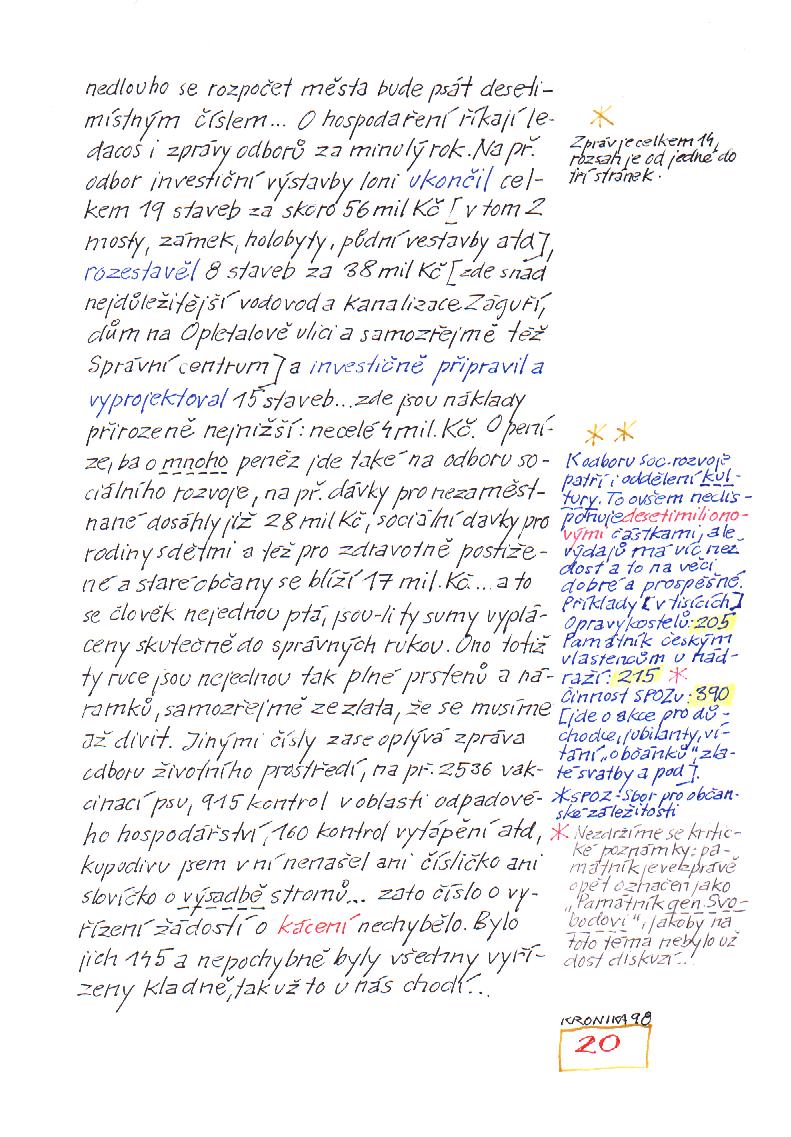 nedlouho se rozpočet města bude psát deseti-
místným číslem... O hospodaření říkají le-
dacos i zprávy odborů za minulý rok. Na př.
odbor investiční výstavby loni ukončil cel-
kem 19 staveb za skoro 56 mil Kč [v tom 2
mosty, zámek, holobyty, půdní vestavby atd],
rozestavěl 8 staveb za 38 mil Kč [zde snad
nejdůležitější vodovod a kanalizace Záguří,
dům na Opletalově ulici a samozřejmě též
Správní centrum] a investičně připravil a
vyprojektoval 15 staveb... zde jsou náklady
přirozeně nejnižší: necelé 4 mil. Kč. O pení-
ze, ba o mnoho peněz jde také na odboru so-
ciálního rozvoje, na př. dávky pro nezaměst-
nané dosáhly již 28 mil Kč, sociální dávky pro
rodiny s dětmi a též pro zdravotně postiže-
né a staré občany se blíží 17 mil. Kč... a to
se člověk nejednou ptá, jsou-li ty sumy vyplá-
ceny skutečně do správných rukou. Ono totiž
ty ruce jsou nejednou tak plné prstenů a ná-
ramků, samozřejmě ze zlata, že se musíme
až divit. Jinými čísly zase oplývá zpráva
odboru životního prostředí, na př. 2536 vak-
cinací psů, 915 kontrol v oblasti odpadové-
ho hospodářství, 160 kontrol vytápění atd,
kupodivu jsem v ní nenašel ani číslíčko ani
slovíčko o výsadbě stromů... zato číslo o vy-
řízení žádostí o kácení nechybělo. Bylo
jich 145 a nepochybně byly všechny vyří-
zeny kladně, tak už to u nás chodí...
*
Zpráv je celkem 14,
rozsah je od jedné do
tří stránek.
* *
K odboru soc. rozvoje
patří i oddělení kul-
tury. To ovšem nedis-
ponuje desetimiliono-
vými částkami, ale
výdajů má víc než
dost a to na věci
dobré a prospěšné.
Příklady [v tisících]
Opravy kostelů: 205
Památník českým
vlastencům u nád-
raží: 215 *
Činnost SPOZu: 390
[jde o akce pro dů-
chodce, jubilanty, ví-
tání „občánků", zla-
té svatby a pod].
* SPOZ-Sbor pro občan-
ské záležitosti
* Nezdržíme se kritic-
ké poznámky: pa-
mátník je ve zprávě
opět označen jako
„Památník gen. Svo-
bodovi", jakoby na
toto téma nebylo už
dost diskuzí...
KRONIKA 98
20